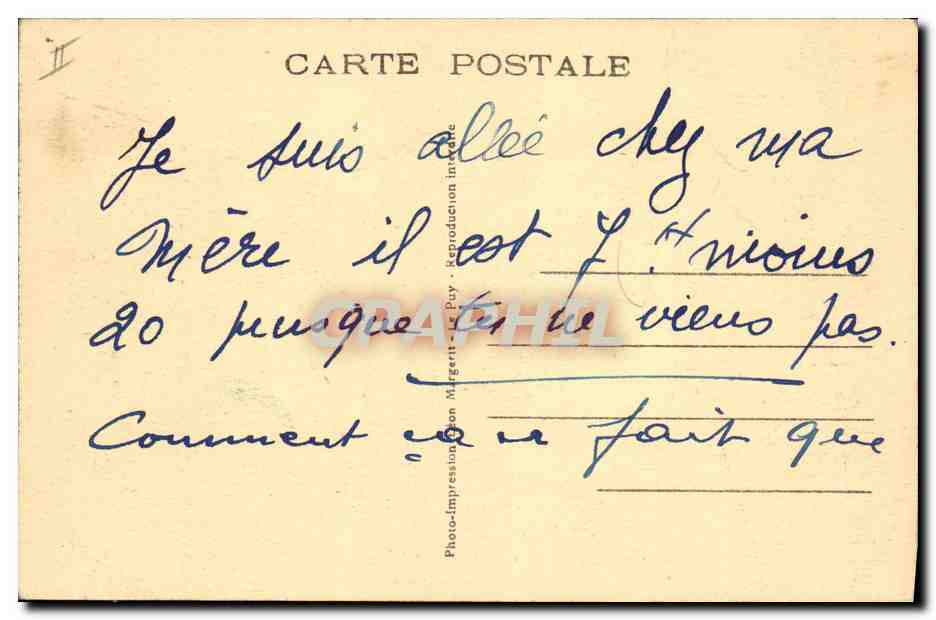 II
CARTE POSTALE
Je suis allée chez ma
mère il est 7 H moins
20 puisque tu ne viens pas.
Comment ça se fait que
Photo-Impression Léon Margerit - Le Puy - Reproduction interdite
CPAPHIL